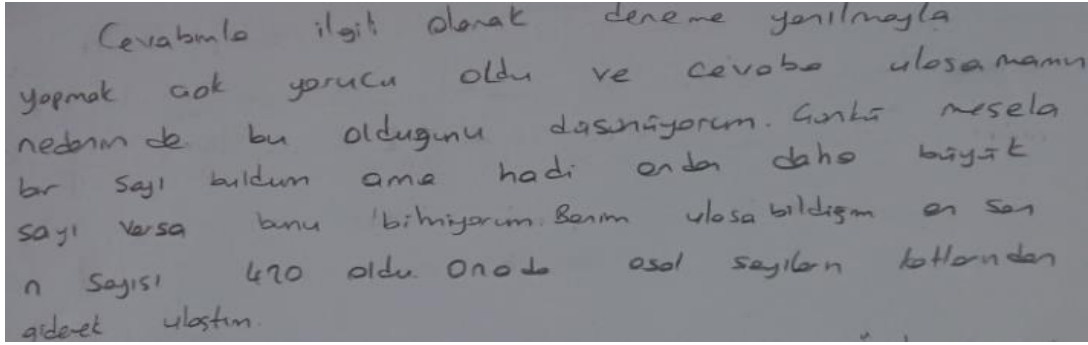 Cevabımla ilgili olarak deneme yanılmayla
yapmak çok yorucu oldu ve cevaba ulaşamamın
nedenin de bu olduğunu düşünüyorum. Çünkü mesela
bir sayı buldum ama hadi ondan daha büyük
sayı varsa bunu bilmiyorum. Benim ulaşabildiğim en son
n sayısı 420 oldu. Ona da asal sayıların katlarından
giderek ulaştım.